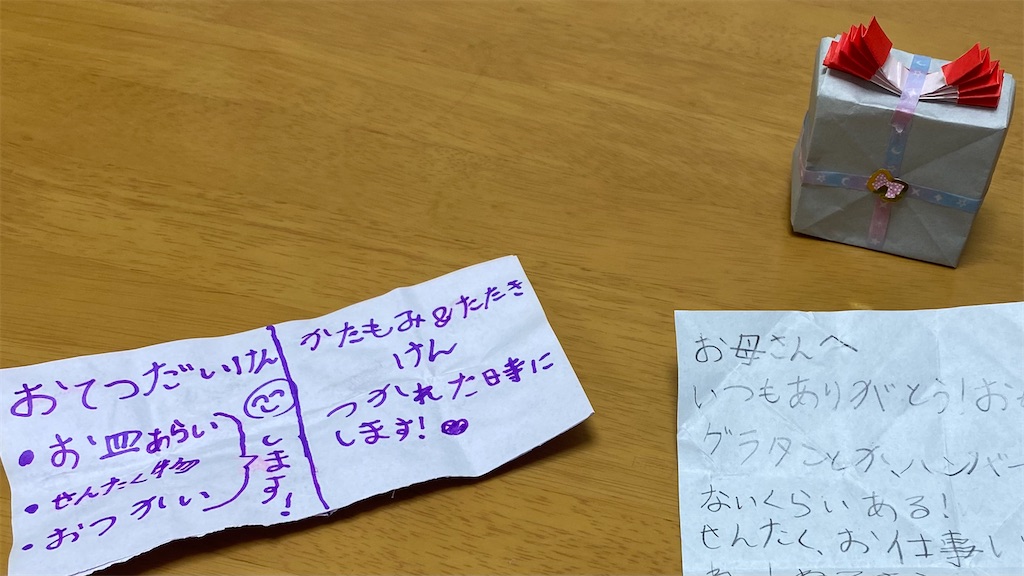 おてつだいけん
・お皿あらい
・せんたく物
・おつかい
します!
かたもみ&たたき
けん
つかれた時に
します!
お母さんへ
いつもありがとう!お
グラタンとか、ハンバー
ないくらいある!
せんたく、お仕事い